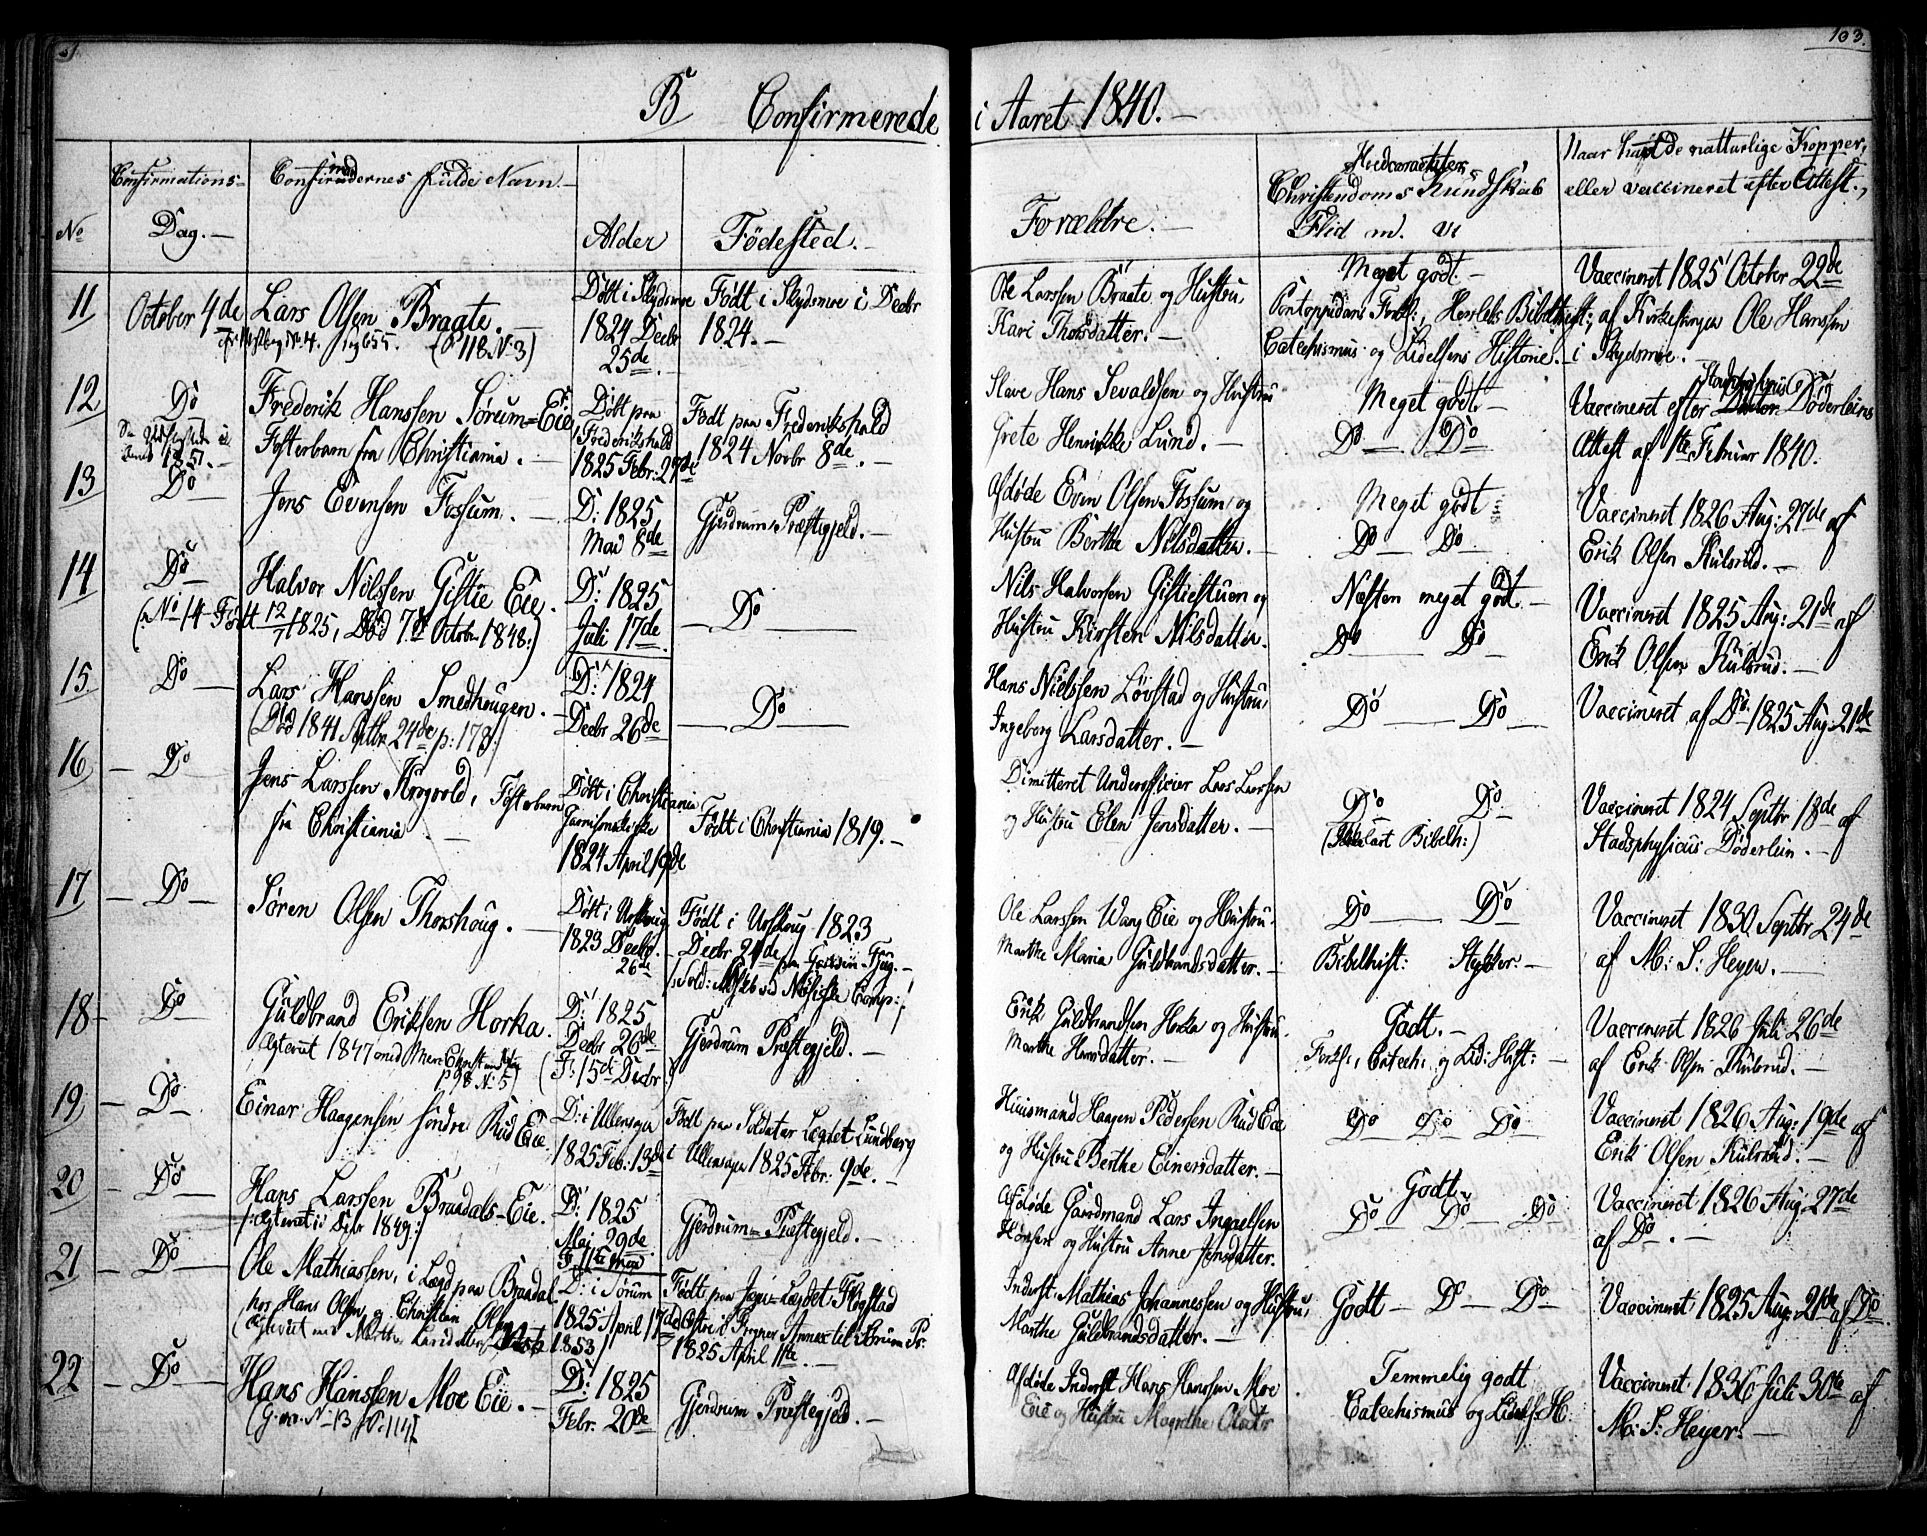 103.
B Confirmerede i Aaret 1840.
No
Confirmations-
Dag.
Confirmandernes fulde Navn
Alder
Fødested.
Forældre.
Christendoms Kundskab
Flid m. v.
Naar havde naturlige Kopper,
eller vaccineret efter Attest.
11
October 4de
Lars Olsen Braate.
(P 118 N. 3)
Døbt i Skydsmoe
1824 Decbr
25de.
Født i Skydsmoe i Decbr
1824.
Ole Larsen Braate og Hustru
Kari Thorsdatter.
Meget godt.
Pontoppidans Forkl:, Herslebs Bibelhist:,
Catechismus og Lidelsens Historie.
Vaccineret 1825 October 22de
af Kirkesanger Ole Hansen
i Skydsmoe.
12
Do
Frederik Hanssen Sørum-Eie
Fosterbarn fra Christiania.
Døbt paa
Frederikshald
1825 Febr: 27de
Født paa Frederikshald
1824 Novbr 8de.
Slave Hans Sevaldsen og Hustru
Grete Henrikke Lund.
Meget godt.
Do Do
Vaccineret efter Døderleins
Attest af 1ste Februar 1840.
13
Do
Jens Evensen Fossum.
D: 1825
Mai 8de
Gjerdrum Præstegjeld.
Afdøde Even Olsen Fossum og
Hustru Berthe Nilsdatter.
Meget godt
Do Do
Vaccineret 1826 Aug: 27de af
Erik Olsen Kulsrud.
14
Do
Halvor Nilssen Gistie Eie.
(: No 14 Født 12/7 1825, Død 7de October 1848:)
D: 1825
Juli 17de
Do
Nils Halvorsen Gistiestuen og
Hustru Kirsten Nilsdatter.
Næsten meget godt
Do Do
Vaccineret 1825 Aug: 21de af
Erik Olsen Kulsrud.
15
Do
Lars Hanssen Smedhaugen.
(Død 1841 Septbr 24de p: 178:)
D: 1824
Decbr 26de
Do
Hans Nielssen Løvstad og Hustru
Ingeborg Larsdatter.
Do Do
Vaccineret af Do 1825 Aug: 21de
16
Do
Jens Larssen Kragvold, Fosterbarn
fra Christiania.
Døbt i Christiania
Garnisonskirke
1824 April 19de
Født i Christiania 1819.
Dimitteret Underofficier Lars Larssen
og Hustru Elen Jensdatter.
Do Do
Vaccineret 1824 Septbr 18de af
Stadsphysicus Döderlein.
17
Do
Søren Olsen Thorshoug.
Døbt i Urskoug
1823 Decbr.
26de
Født i Urskoug 1823
Decbr 21de
Ole Larssen Wang Eie og Hustru
Marthe Maria Guldbrandsdatter.
Do Do
Bibelhist: Stykker:
Vaccineret 1830 Septbr 24de
af M: S: Heyer.
18
Do
Guldbrand Eriksen Horka.
Egteviet 1847 med
p 98 N: 5)
D: 1825
Decbr 26de
(F: 15de Decbr:)
Gjerdrum Præstegjeld.
Erik Guldbrandsen Horka og Hustru
Marthe Hansdatter.
Godt.
Forkl:, Catech:, og Lid: Hist:
Vaccineret 1826 Juli 26de
af Erik Olsen Kulsrud.
19
Do
Einar Haagensen søndre Rud Eie
D: i Ullensager
1825 Feb: 13de
Født paa Soldater Legdet Lundberg
i Ullensager 1825 Febr: 9de.
Huusmand Haagen Pedersen Rud Eie
og Hustru Berthe Einersdatter.
Do Do Do
Vaccineret 1826 Aug: 19de af
Erik Olsen Kulsrud.
20
Do
Hans Larssen Braadals-Eie.
(:Egteviet i Decbr 1849:)
D: 1825
Mai 29de
Gjerdrum Præstegjeld.
Afdøde Gaardmand Lars Ingvelsen
og Hustru Anne Jensdatter.
Godt
Do Do Do
Vaccineret 1826 Aug: 27de
af Do.
21
Do
Ole Mathiassen, i Lægd paa Braadal
hos Hans Olsen og Christian Olsen
1853)
D: i Sørum
1825 April 17de
1825 April 11te.
Inderst Mathias Johannessen og Hustru
Marthe Guldbrandsdatter.
Godt Do Do
Vaccineret 1825 Aug: 21de af Do
22
Do
Hans Hanssen Moe Eie.
D: 1825
Febr. 20de
Gjerdrum Præstegjeld.
Afdøde Inderst Hans Hanssen Moe
Eie og Hustru Magrethe Olsdtr
Temmelig godt
Catechismus og Lidels: H:
Vaccineret 1836 Juli 30te af
M: S: Heyer: